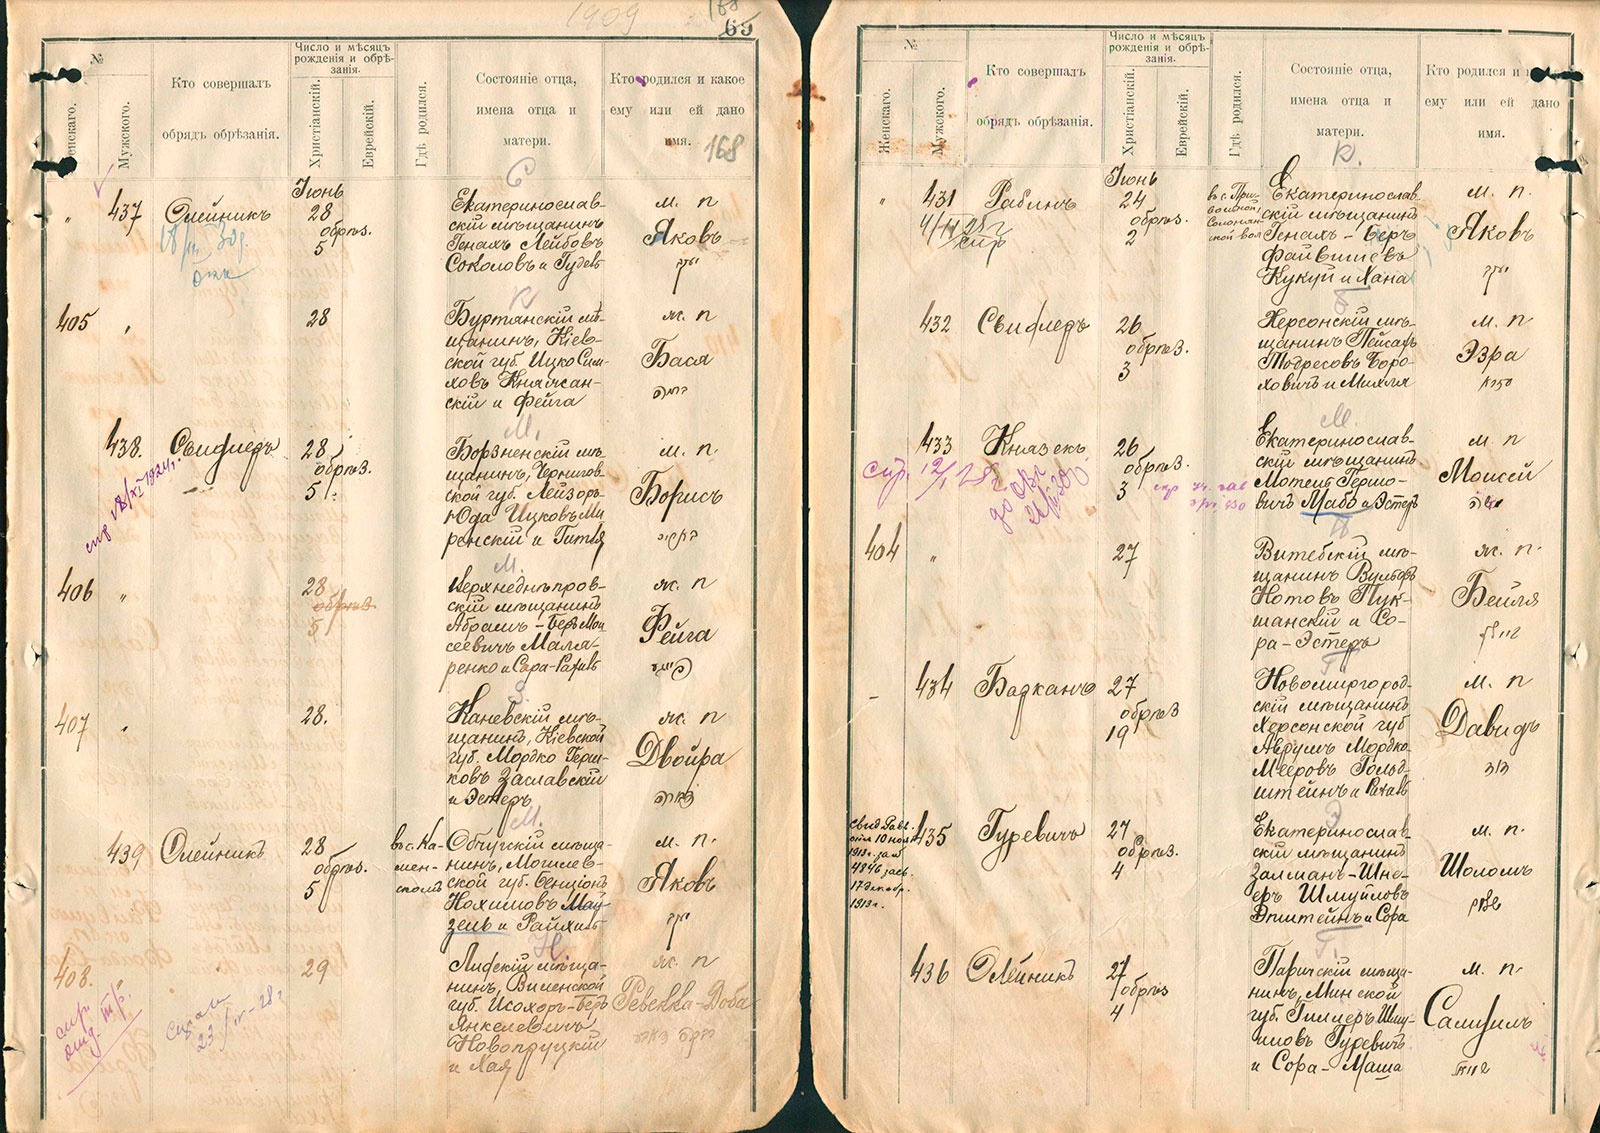 1909
168
65
№
Женскаго.
Мужского.
Кто совершалъ
обрядъ обрѣзанія.
Число и мѣсяцъ
рожденія и обрѣ-
занія.
Христіанскій.
Еврейскій.
Гдѣ родился.
Состояніе отца,
имена отца и
матери.
Кто родился и какое
ему или ей дано
имя.
168
С
Іюнь
„ 437 Олейникъ 28
обрѣз.
5
Екатеринослав-
скій мѣщанинъ
Генахъ Лейбовъ
Соколовъ и Гудесъ
м. п
Яковъ
יעקב
К
405 „ 28
Буртянскій мѣ-
щанинъ, Кіев-
ской губ. Ицко Сим-
ховъ Княжан-
скій и Фейга
ж. п
Бася
М.
438. Свифлеръ 28
обрѣз.
5
Борзненскій мѣ-
щанинъ, Чернигов-
ской губ. Лейзоръ-
Юда Ицковъ Ми
ренскій и Гитля
м. п.
Борисъ
М.
406 „ 28
обрѣз
5
Верхнеднѣпров-
скій мѣщанинъ
Абрамъ-Беръ Мои
сеевичъ Маля-
ренко и Сара-Рахиль
ж. п
Фейга
З.
407 „ 28.
Каневскій мѣ-
щанинъ, Кіевской
губ. Мордко Герш-
ковъ Заславскій
и Эстеръ
ж. п
Двойра
М.
439 Олейникъ 28
обрѣз.
5
въ с. Ка-
мен-
скомъ
Обчугскій мѣща-
нинъ, Могилев-
ской губ. Бенціонъ
Нохимовъ Май-
зель и Райхиль
м. п.
Яковъ
יעקב
Н.
408. 29
Лифскій мѣща-
нинъ, Виленской
губ. Исохоръ-Беръ
Янкелевичъ
Новопруцкій
и Хая
ж. п
Ревекка-Доба
№
Женскаго.
Мужского.
Кто совершалъ
обрядъ обрѣзанія.
Число и мѣсяцъ
рожденія и обрѣ-
занія.
Христіанскій.
Еврейскій.
Гдѣ родился.
Состояніе отца,
имена отца и
матери.
Кто родился и
ему или ей дано
имя.
К.
Іюнь
„ 431 Рабинъ 24
обрѣз.
2
въ с. При-
вольной,
Екатеринослав
скій мѣщанинъ
Генахъ-Беръ
Файвишевъ
Кукуй и Хана
м. п.
Яковъ
יעקב
432 Свифлеръ 26
обрѣз.
3
Херсонскій мѣ-
щанинъ Пейсахъ
Тодресовъ Боро-
ховичъ и Михля
м. п
Эзра
עזרא
М.
433 Князек 26
обрѣз.
3
Екатеринослав-
скій мѣщанинъ
Мотель Гершо-
вичъ Мабо и Эстеръ
м п
Моисей
משה
404 „ 27
Витебскій мѣ-
щанинъ Вульфъ
Нотовъ Пук-
шанскій и Со-
ра-Эстеръ
ж. п.
Бейля
ביילא
Г
434 Барканъ 27
обрѣз
19
Новомиргород-
скій мѣщанинъ
Херсонской губ
Аврумъ Мордко-
Мееровъ Гольд-
штейнъ и Рахиль
м. п
Давидъ
דוד
Э
435 Гуревичъ 27
обрѣз.
4
Екатеринослав
скій мѣщанинъ
Залманъ-Шне-
еръ Шмуйловъ
Эпштейнъ и Сора
м. п.
Шоломъ
Г.
436 Олейникъ 27
обрѣз
4
Паричскій мѣща-
нинъ, Минской
губ. Гиммеръ Шму-
иловъ Гуревичъ
и Сора-Маша
м. п.
Самуилъ